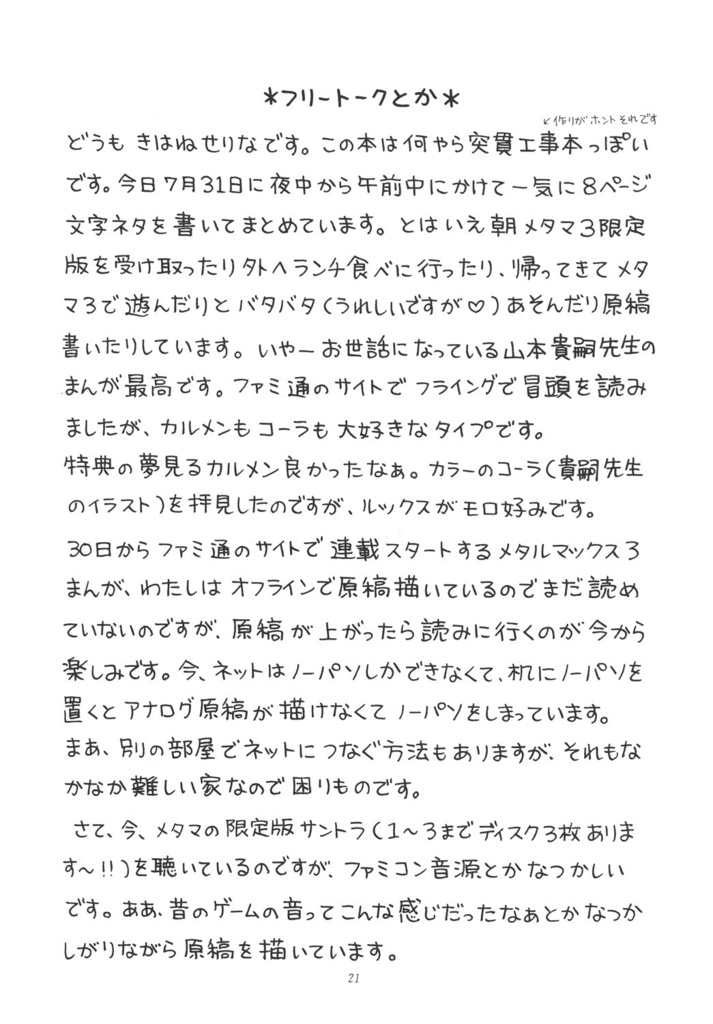 *フリートークとか*
↙作りがホントそれです
どうも きはねせりなです。この本は何やら突貫工事本っぽい
です。今日7月31日に夜中から午前中にかけて一気に8ページ
文字ネタを書いてまとめています。とはいえ朝メタマ3限定
版を受け取ったり外へランチ食べに行ったり、帰ってきてメタ
マ3で遊んだりとバタバタ(うれしいですが♡)あそんだり原稿
書いたりしています。いやーお世話になっている山本貴嗣先生の
まんが最高です。ファミ通のサイトでフライングで冒頭を読み
ましたが、カルメンもコーラも大好きなタイプです。
特典の夢見るカルメン良かったなぁ。カラーのコーラ(貴嗣先生
のイラスト)を拝見したのですが、ルックスがモロ好みです。
30日からファミ通のサイトで連載スタートするメタルマックス3
まんが、わたしはオフラインで原稿描いているのでまだ読め
ていないのですが、原稿が上がったら読みに行くのが今から
楽しみです。今、ネットはノーパソしかできなくて、机にノーパソを
置くとアナログ原稿が描けなくてノーパソをしまっています。
まあ、別の部屋でネットにつなぐ方法もありますが、それもな
かなか難しい家なので困りものです。
さて、今、メタマの限定版サントラ(1〜3までディスク3枚あります
す〜!!)を聴いているのですが、ファミコン音源とかなつかしい
です。ああ、昔のゲームの音ってこんな感じだったなぁとかなつか
しがりながら原稿を描いています。
21